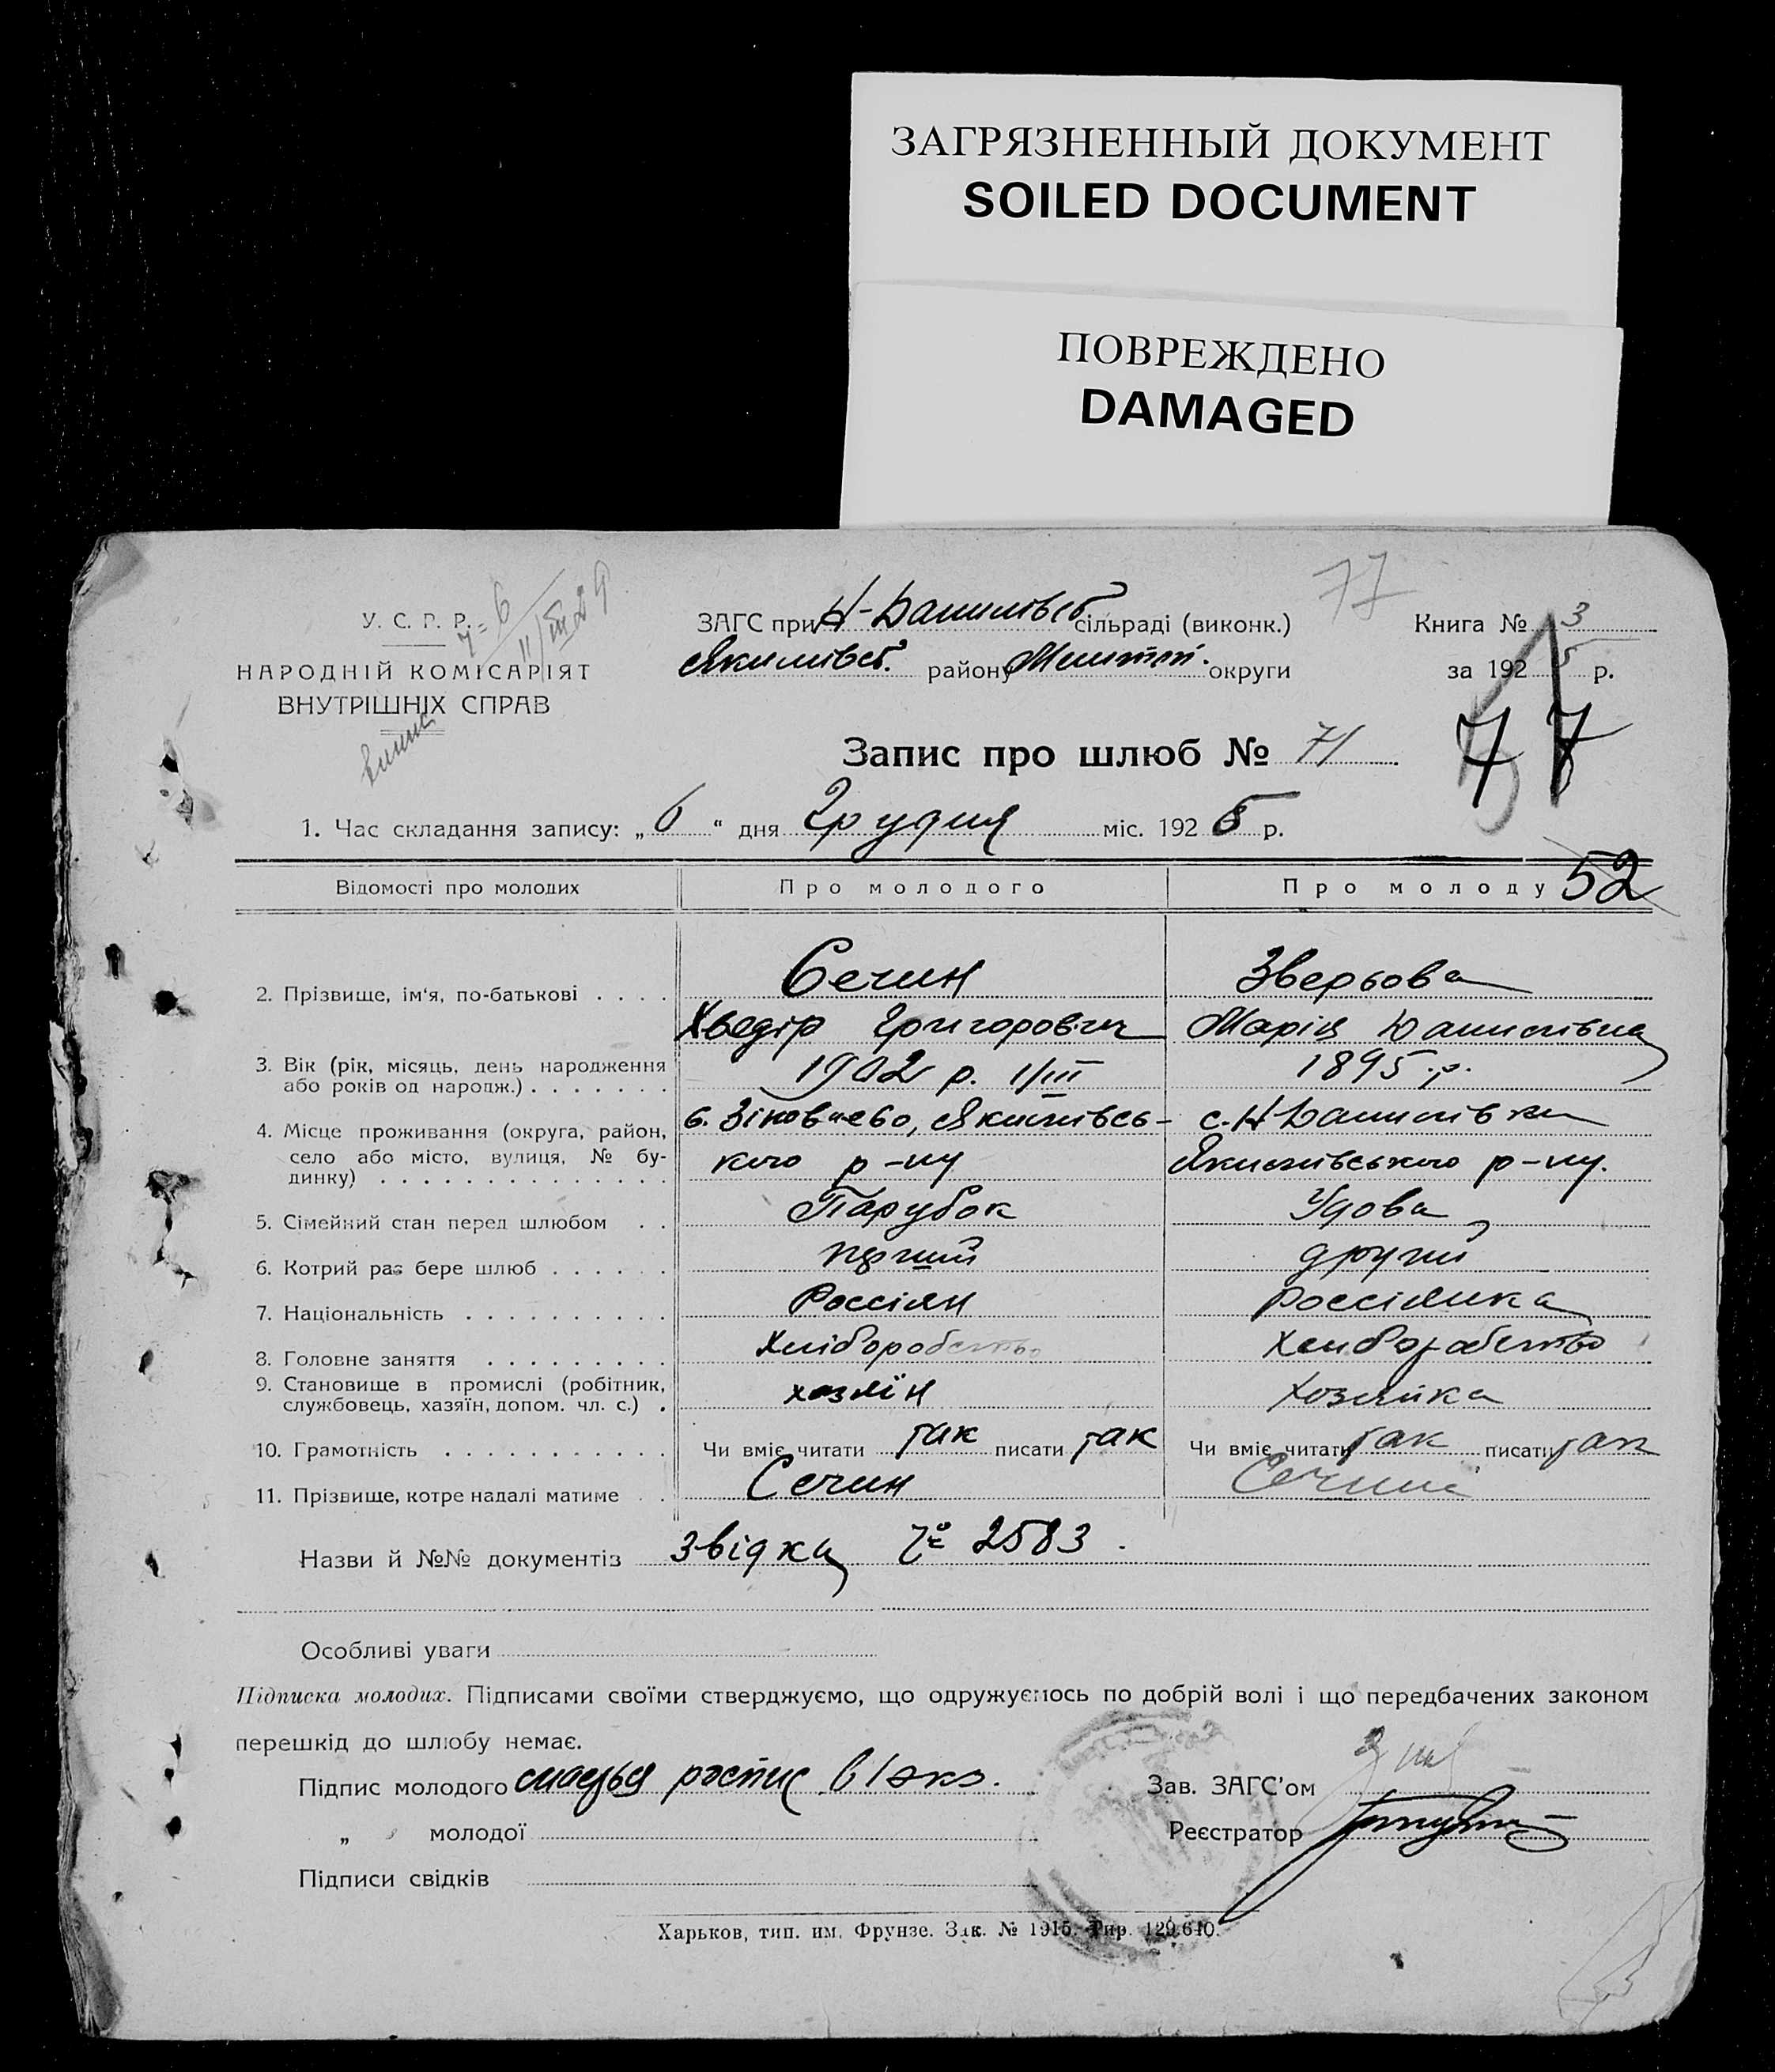 ЗАГРЯЗНЕННЫЙ ДОКУМЕНТ
SOILED DOCUMENT
ПОВРЕЖДЕНО
DAMAGED
77
У. С. Р. Р.
НАРОДНІЙ КОМІСАРІЯТ
ВНУТРІШНІХ СПРАВ
ЗАГС при Н-Данилівсь. сільраді (виконк.)
Якимівсь. району Мелітоп. округи
Книга № 3
за 1925 р.
77
Запис про шлюб № 71
1. Час складання запису: „6“ дня Грудня міс. 1925 р.
Відомості про молодих Про молодого Про молоду 52
2. Прізвище, ім'я, по-батькові . . . . Сечин Зверьова
Хведір Григорович Марія Данилівна
3. Вік (рік, місяць, день народження або років од народж.) . . . . . . . 1902 р. 1/III 1895 р.
4. Місце проживання (округа, район, село або місто, вулиця, № будинку) . . . . . . . . . . . . . . .
Якимівсь- с. Н Данилівки
кого р-ну Якимівського р-ну.
5. Сімейний стан перед шлюбом . . Парубок Удова
6. Котрий раз бере шлюб . . . . . . перший другий
7. Національність . . . . . . . . . . Россіян Россіянка
8. Головне заняття . . . . . . . . . Хліборобство Хліборобство
9. Становище в промислі (робітник, службовець, хазяїн, допом. чл. с.) . хозяїн хозяйка
10. Грамотність . . . . . . . . . . . Чи вміє читати так писати так Чи вміє читати так писати так
11. Прізвище, котре надалі матиме . . Сечин Сечина
Назви й №№ документів Звідка № 2583.
Особливі уваги
Підписка молодих. Підписами своїми стверджуємо, що одружуємось по добрій волі і що передбачених законом
перешкід до шлюбу немає.
Підпис молодого роспис в 1 экз.
Зав. ЗАГС'ом
„ молодої
Реєстратор
Підписи свідків
Харьков, тип. им. Фрунзе. Зак. № 1915. Тир. 129.640.